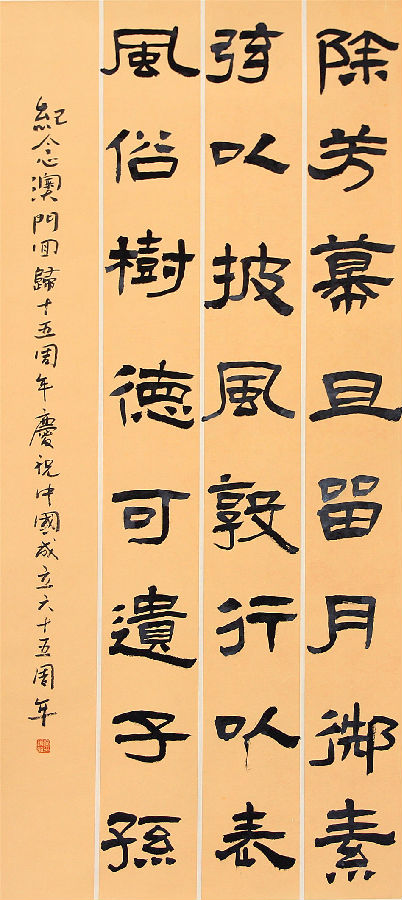 除芳幕且留月御素
弦以披風敦行以表
風俗樹德可遺子孫
紀念澳門回歸十五周年慶祝中國成立六十五周年